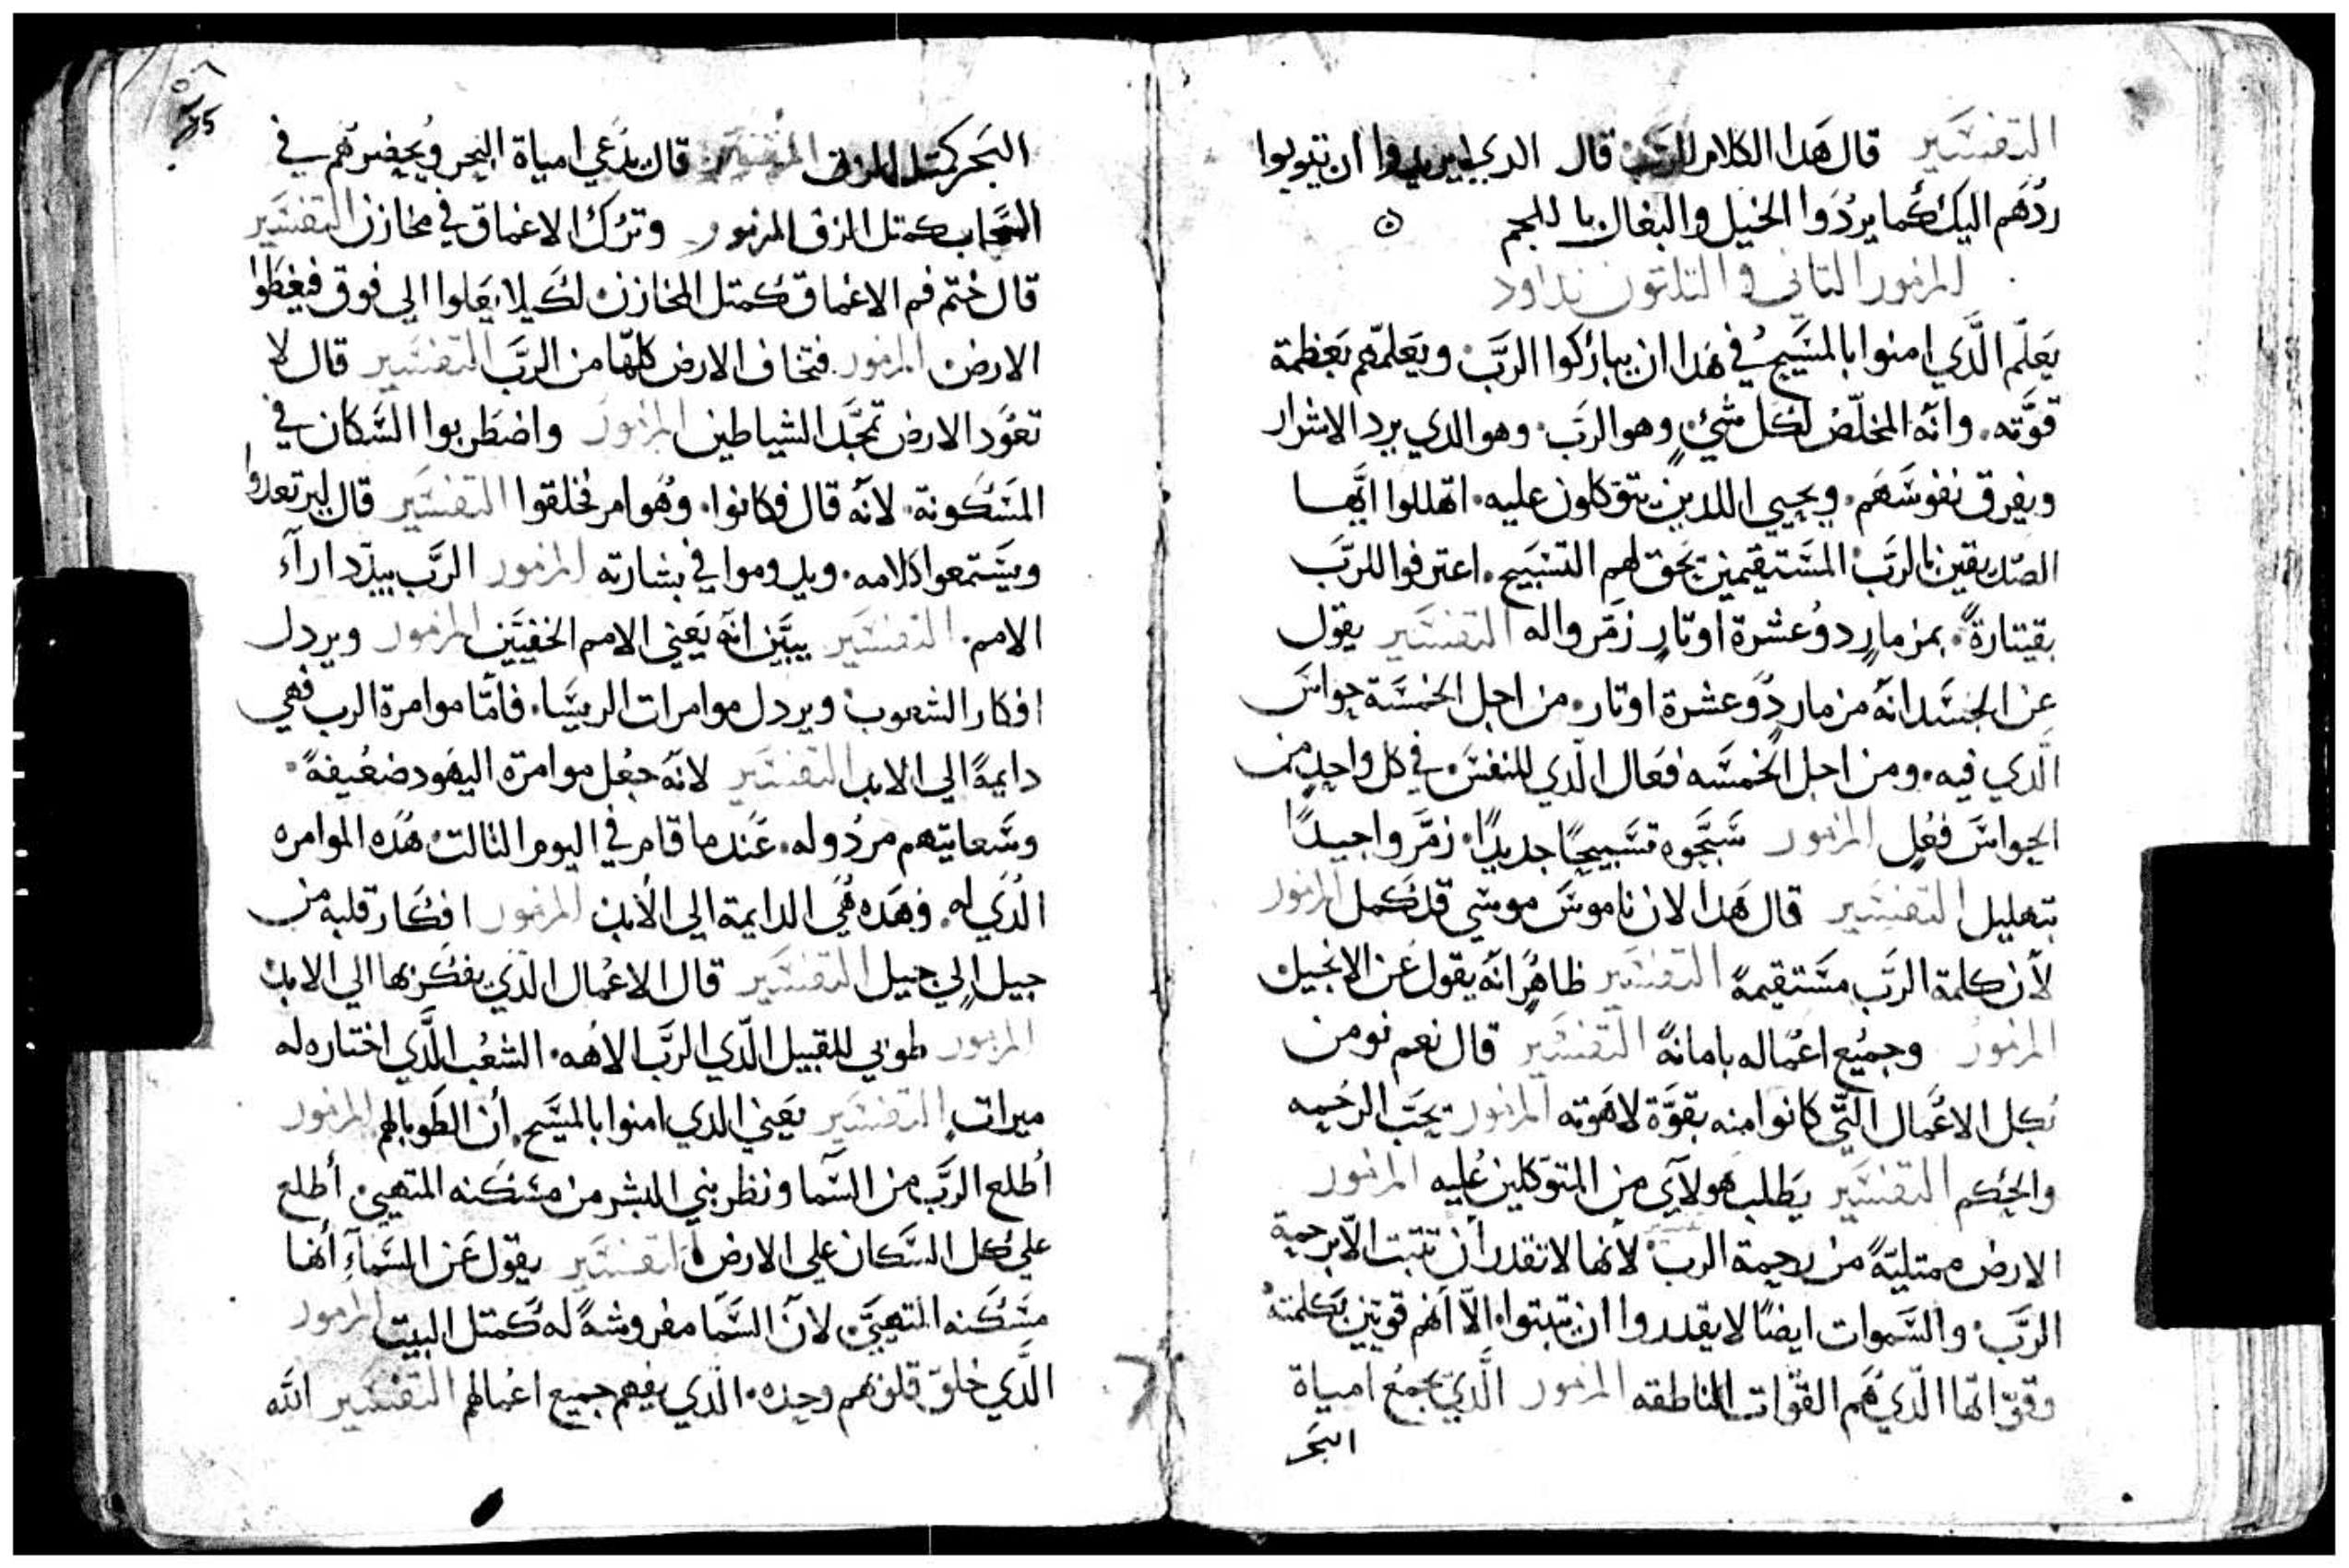 التفسير قال هدا الكلام للرب قال الدي لم يريدوا ان يتوبوا
ردهم اليك كما يردوا الخيل والبغال باللجم ه
المزمور التاني و التلتون لداود
يعلم الدي امنوا بالمسيح في هدا ان يباركوا الرب ويعلمهم بعظمة
قوته. وانه المخلص لكل شيء وهو الرب. وهو الدي يرد الاشرار
ويفرق نفوسهم. ويحيي اللدين يتوكلون عليه. اتهللوا ايها
الصديقين بالرب المستقيمين يحق لهم التسبيح. اعترفوا للرب
بقيتارة. بمزمار دو عشرة اوتار زمروا له التفسير يقول
عن الجسد انه مزمار دو عشرة اوتار. من اجل الخمسة حواس
الدي فيه. ومن اجل الخمسه فعال الدي للنفس. في كل واحد من
الحواس فعل المزمور سبحوه تسبيحا جديدا. زمروا جيدا
بتهليل التفسير قال هدا لان ناموس موسي قد كمل المزمور
لان كلمة الرب مستقيمة التفسير ظاهرا انه يقول عن الانجيل
المزمور وجميع اعماله بامانة التفسير قال نعم نومن
بكل الاعمال التي كانوا منه بقوة لاهوته المزمور يحب الرحمه
والحكم التفسير يطلب هولاي من المتوكلين عليه المزمور
الارض ممتلية من رحمة الرب لانها لا تقدر ان تتبت الا برحمة
الرب. والسموات ايضا لا يقدروا ان يتبتوا. الا انهم قويين بكلمته
وقواتها الدي هم القوات الناطقه المزمور الدي يجمع امياة
البحر
البحر كمتل الزق التفسير قال يدعي امياة البحر ويحضرهم في
السحاب كمتل الزق المزمور وترك الاغماق في مخازن التفسير
قال ختم فم الاغماق كمتل المخازن لكيلا يعلوا الي فوق فيغطوا
الارض المزمور فتخاف الارض كلها من الرب التفسير قال لا
تعود الارض تمجد الشياطين المزمور واضطربوا السكان في
المسكونة. لانه قال فكانوا. وهو امر فخلقوا التفسير قال ليرتعدوا
ويستمعوا كلامه. ويدوموا في بشارته المزمور الرب يبدد اراء
الامم. التفسير يبين انه يعني الامم الخفيين المزمور ويردل
افكار الشعوب ويردل موامرات الريسا. فاما موامرة الرب فهي
دايمة الي الابد التفسير لانه جعل موامرة اليهود ضعيفة
وسعايتهم مردوله. عندما قام في اليوم التالت هده الموامره
الدي له. وهده هي الدايمة الي الابد المزمور افكار قلبه من
جيل الي جيل التفسير قال الاعمال الدي يفكر بها الي الابد
المزمور طوبي للقبيل الدي الرب الاهه. الشعب الدي اختاره له
ميرات التفسير يعني الدي امنوا بالمسيح. ان الطوبا لهم المزمور
اطلع الرب من السما ونظر بني البشر من مسكنه المتهيي اطلع
علي كل السكان علي الارض التفسير يقول عن السماء انها
مسكنه المتهيي لان السما مفروشة له كمتل البيت المزمور
الدي خلق قلوبهم وحده. الدي يفهم جميع اعمالهم التفسير الله